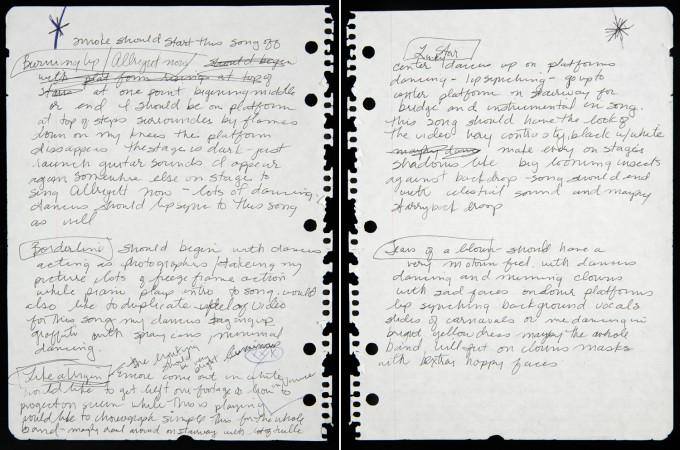 smoke should start this song off
Burning Up / Allright now should begin
with plat form rising at top of
stairs at one point beginning middle
or end I should be on platform
at top of steps surrounded by flames
down on my knees then platform
dissappears the stage is dark - just
raunch guitar sounds. I appear
again somewhere else on stage to
sing Allright now - lots of dancing,
dancers should lip sync to this song
as well
Borderline should begin with dancers
acting as photographers/taking my
picture lots of freeze frame action
while piano plays intro to song. would
also like to duplicate of video
for this song. my dancers
graffitti with spray cans, minimal
dancing.
the lighting
should be very
bright luminous
XXX
Like a Virgin smoke come out in white
would like to get left over footage of lion in Venice
to project on screen while this is playing
would like to choreograph simple this for the whole
band - maybe dance around on stairway with lots of tulle
Lucky Star
center dancer up on platforms
dancing - lip synching - go up to
center platform on stairway for
bridge and instrumental in song.
this song should have the look of
the video very contrasty, black & white
maybe make every on stages
shadows like big looming insects
against back drop - song should end
with celestial sound and maybe
starry back droop
Tears of a Clown - should have a
very motown feel with dancers
dancing and miming clowns
with sad faces on our platforms
lip synching background vocals
slides of carnavals or me dancing in
bright yellow dress maybe the whole
band will put on clowns masks
with bextra happy faces